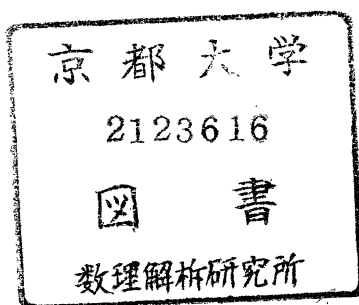 京都大学
2123616
図書
数理解析研究所